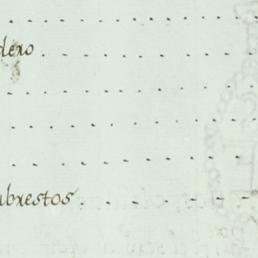 dero
abrestos